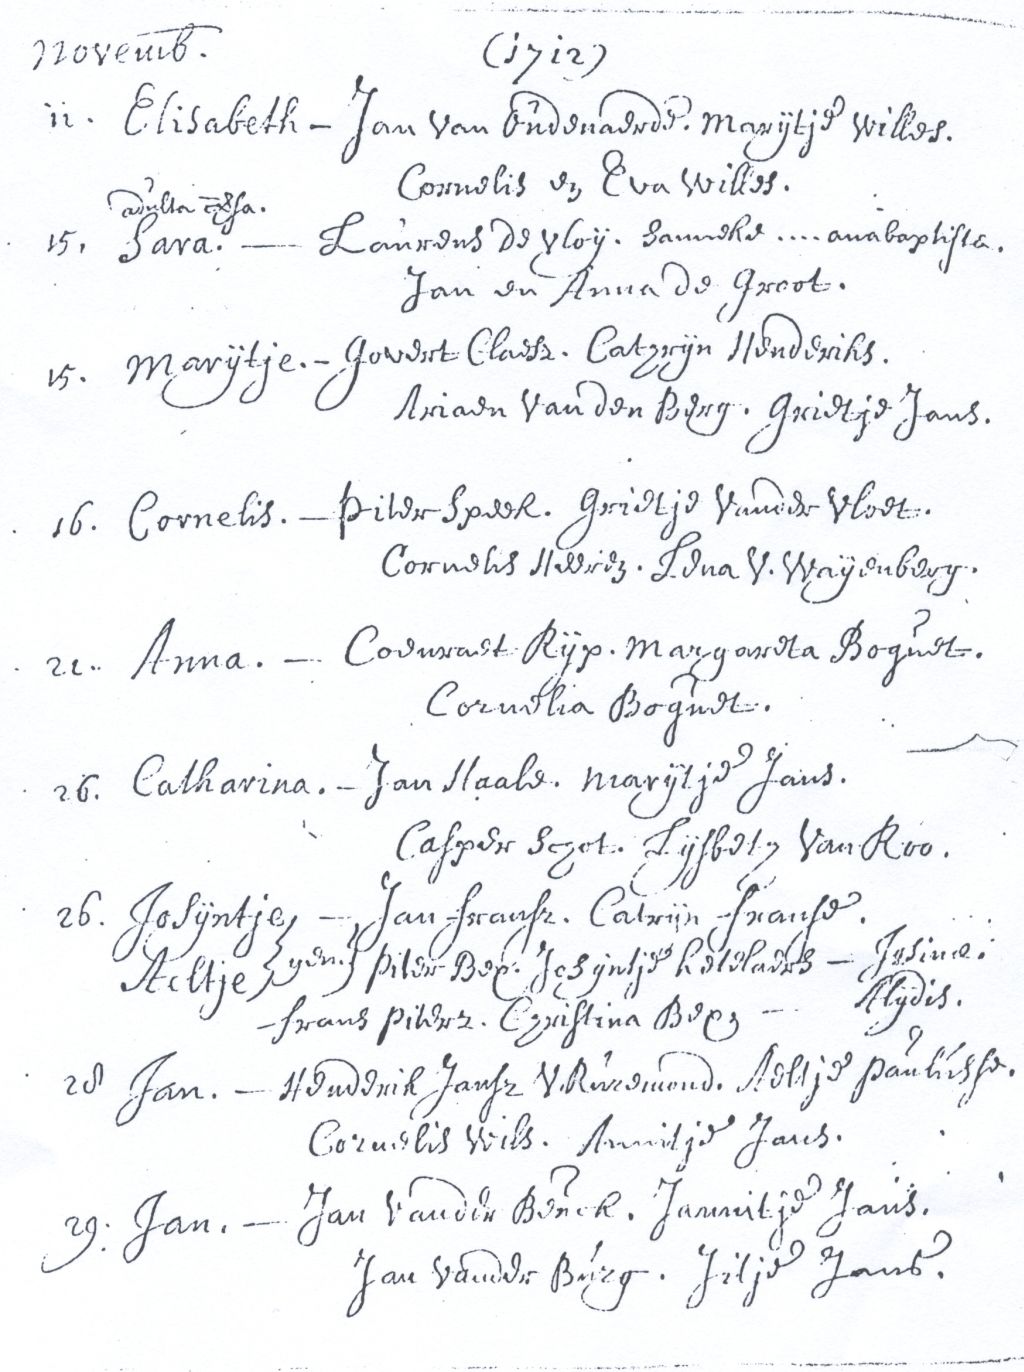 Novemb. (1712)
11. Elisabeth – Jan van Oudenaerde. Marijtje Willes.
Cornelis en Eva Willes.
adulta
15. Sara. — Laurens de Vloij. Sanneke .... anabaptista.
Jan en Anna de Groot.
15. Marijtje. – Govert Claesz. Catrijn Henderiks.
Ariaen van den Berg. Grietje Jans.
16. Cornelis. – Pieter Speek. Grietje vander Vloet.
Cornelis Heerez. Lena v. Waijenberg.
21. Anna. – Coenraet Rijp. Margareta Boguet.
Cornelia Boguet.
26. Catharina. – Jan Haale. Marijtje Jans.
Casper Schot. Lijsbeth van Roo.
26. Josijntje, – Jan Fransz. Catrijn Franse.
Aeltje, gem. Pieter Bex. Josijntje Ketelaers – Josinae.
Frans Pieterz. Christina Bex — Alijdis.
28 Jan. – Henderik Jansz v. Ruremond. Aeltje Paulusse.
Cornelis Wils. Annitje Jans.
29. Jan. – Jan vander Beuck. Jannitje Jans.
Jan vander Burg. Jitje Jans.